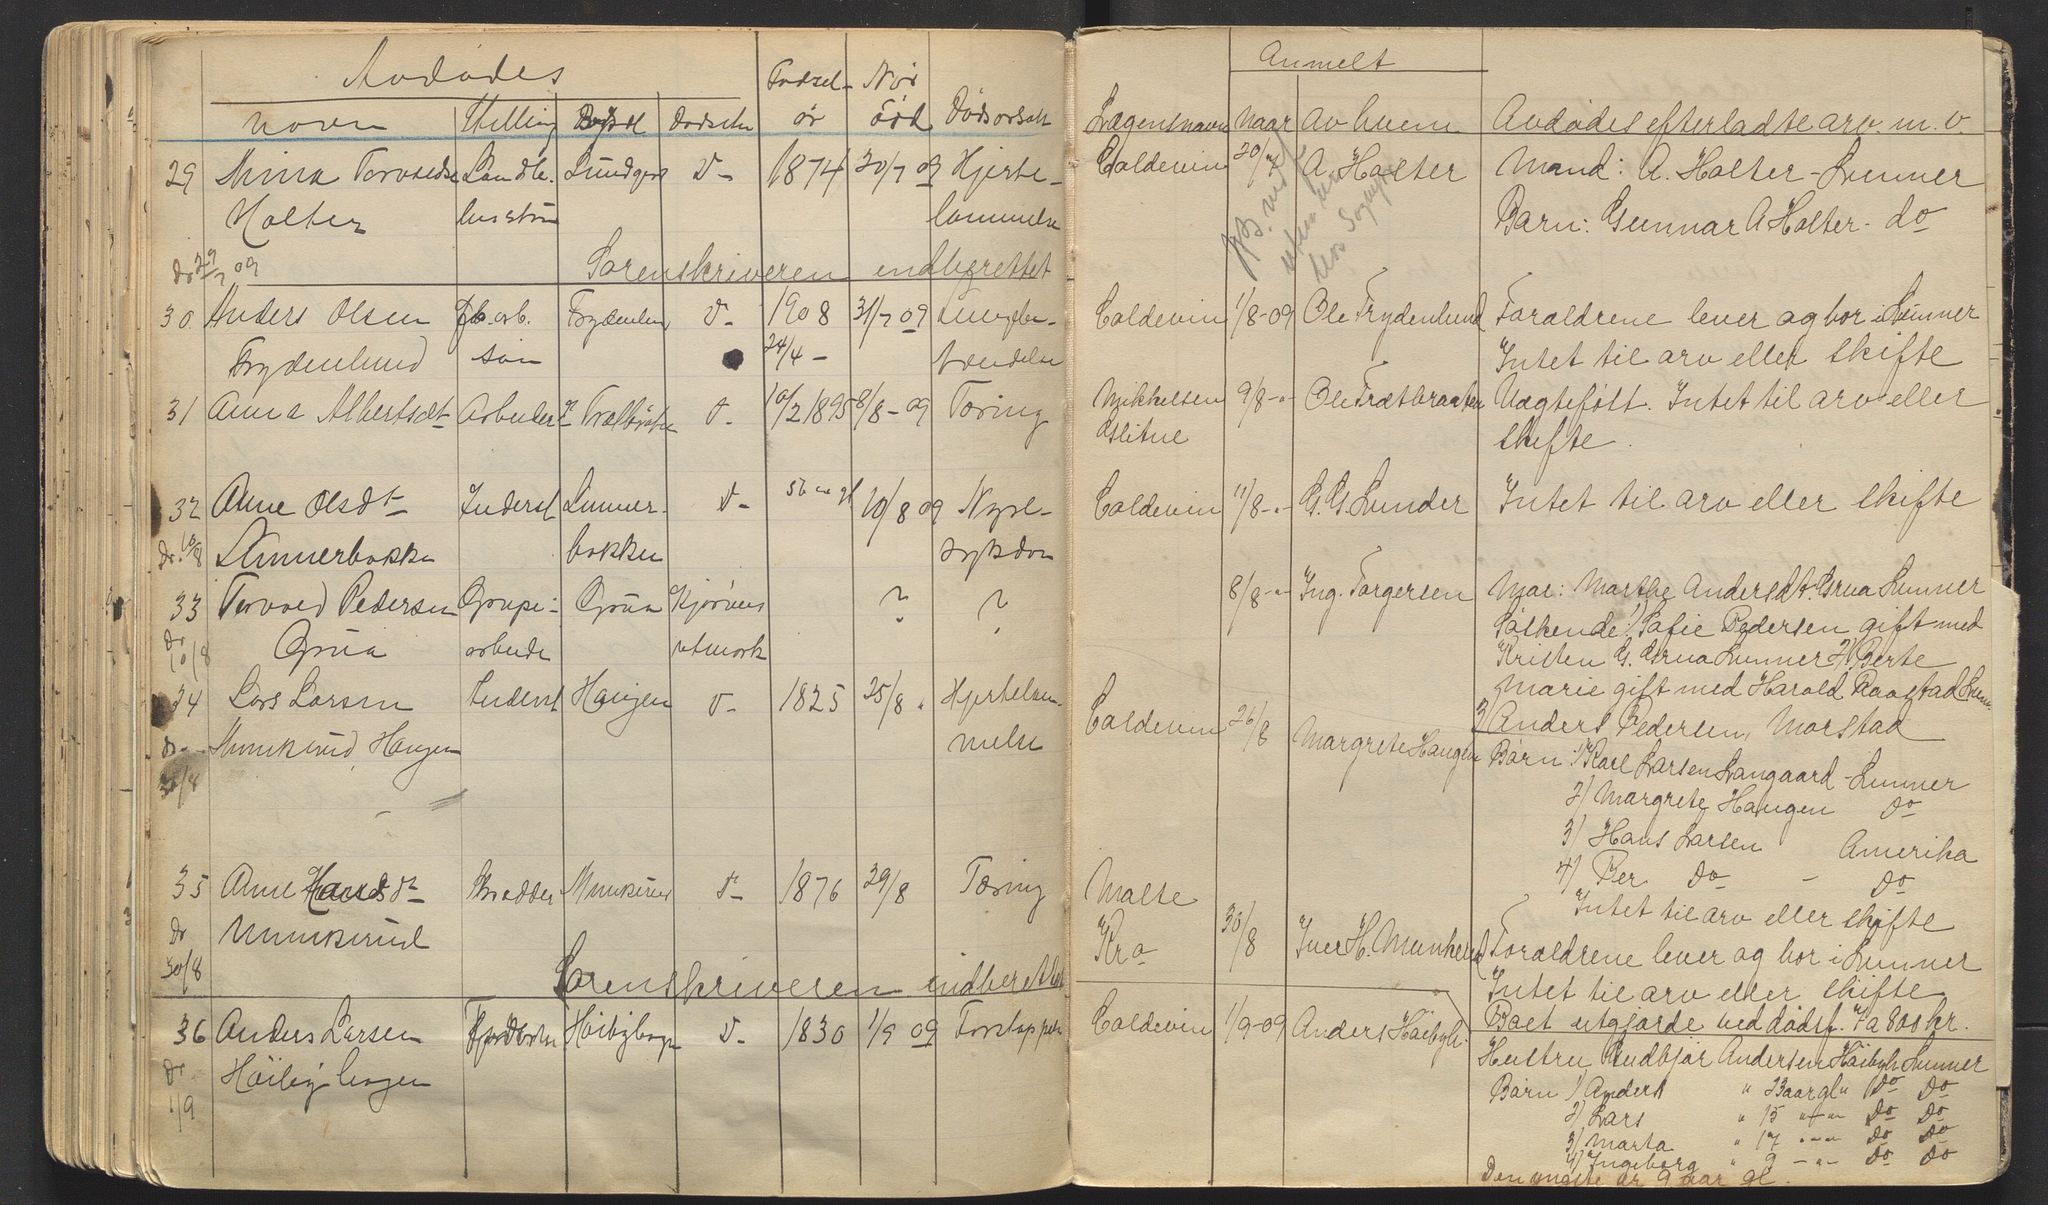 Avdødes
Navn Stilling Bosted Dødsste Fødsel-år Når død Dødsorsak
29 Mina Torvaldsd Landh. Lundger d- 1874 20/7 09 Hjerte-
Holter hustru lammelse
29/7 09 Sorenskriveren indberettet
30. Anders Olsen Fb.arb. Frydenlun d- 1908 31/7 09 Lungebe-
Frydenlund søn 24/4 - tændelse
31 Anna Albertsdt Arbeider Trætbråten d- 10/2 1895 8/8-09 Tæring
32 Anne Olsdt Inderst Lunner- d- 56 gl 10/8 09 Nyre-
Dr. 10/8 Lunnerbakken bakken sykdom
33 Torvald Pedersen Grube- Grua Kjørvens ? ?
Dr 10/8 Grua arbeide utmark
34 Lars Larsen Inderst Haugen d- 1825 25/8 " Hjertelam-
Munkerud, Haugen melse
35 Anne Hansdt Munkerud d- 1876 29/8 Tæring
Dr Munkerud
30/8 Sorenskriveren indberettet
36 Anders Larsen Høibyhagen d- 1830 1/9 09
Dr Høibyhagen
1/9
Anmelt
Lægens navn Naar Av hvem Avdødes efterladte arv. m. v.
Coldevin 20/7 A. Holter Mand: A. Holter - Lunner
Barn: Gunnar A Holter - do
Coldevin 1/8-09 Ole Frydenlund Foraldrene lever og bor i Lunner
Intet til arv eller skifte
Mikkelsen 9/8-"- Ole Trætbraaten Uægtefødt. Intet til arv eller
skifte.
Coldevin 11/8-"- G. G. Lunder Intet til arv eller skifte
8/8-"- Ing. Torgersen Mor: Marthe Andersdt. Grua Lunner
Søskende: 1) Sofie Pedersen gift med
Kristen G. Grua Lunner 2) Berte
Marie gift med Harald Raastad Lunn
3) Anders Pedersen, Morstad
Coldevin 26/8 Margrete Haugen Børn: 1) Karl Larsen Langaard - Lunner
2) Margrete Haugen do
3) Hans Larsen Amerika
4) Per do - do
Intet til arv eller skifte
Malte
Kra 30/8 Iver H. Munkerud Foraldrene lever og bor i Lunner
Intet til arv eller skifte
Coldevin 1/9-09 Anders Høibyh. Boet utgjorde ved dødsf. Ca 800 kr.
Hustru Gudbjør Andersen Høibyh Lunner
Børn 1) Anders " 23 aar gl " do do
2) Lars " 15 "-"- do do
3) Marta " 17 "-"- do do
4) Ingeborg " 9 -"- do do
Den yngste er 9 aar gl.